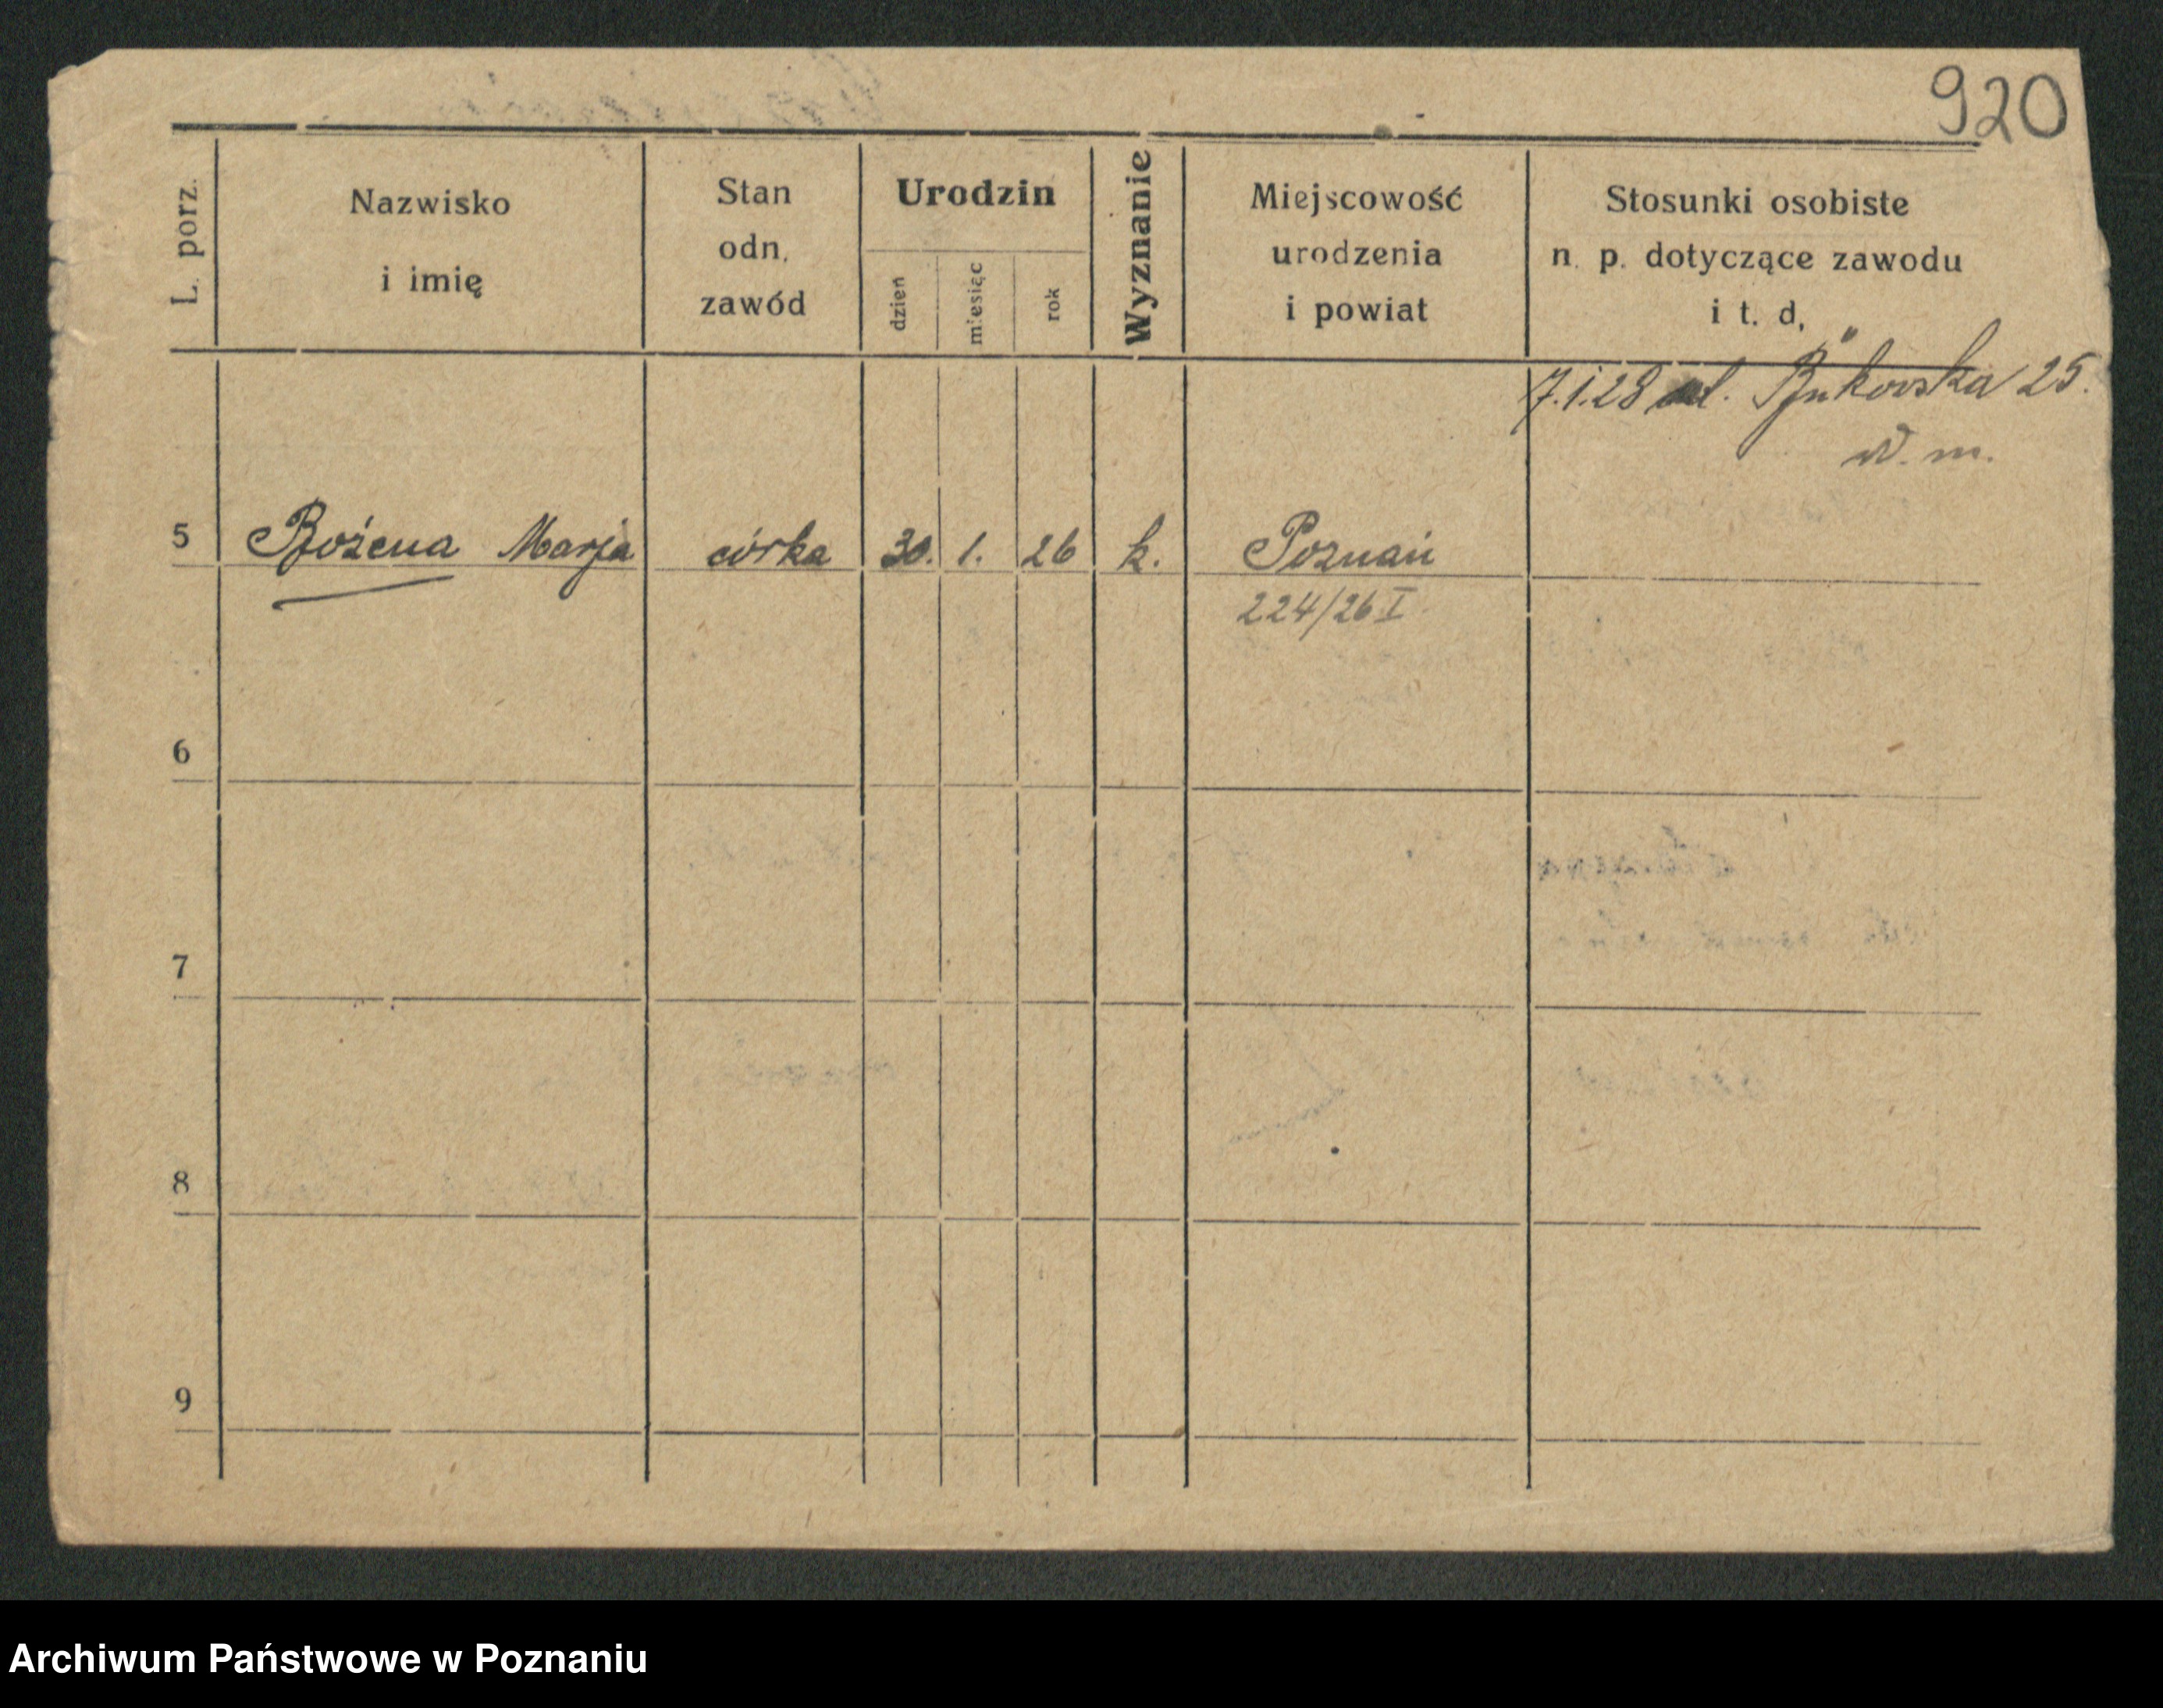 920
L. porz.
Nazwisko
i imię
Stan
odn.
zawód
Urodzin
dzień
miesiąc
rok
Wyznanie
Miejscowość
urodzenia
i powiat
Stosunki osobiste
n. p. dotyczące zawodu
i t. d,
7.1.28 ul. Bukowska 25.
W. m.
5 Bożena Marja córka 30. 1. 26 k. Poznań
224/26 I
6
7
8
9
Archiwum Państwowe w Poznaniu